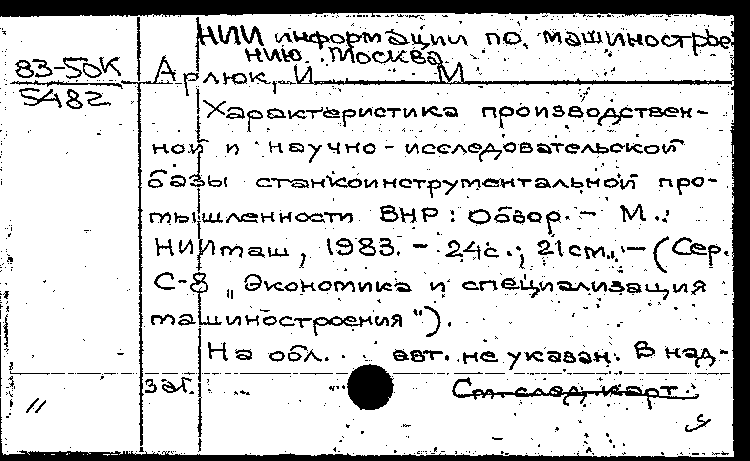 НИИ информации по машинострое
нию. Москва
83-50К Арлюк, И М
5482
Характеристика производствен-
ной и научно-исследовательской
базы станкоинструментальной про-
мышленности ВНР: Обзор. - М.:
НИИмаш, 1983. - 24с.; 21см. - (Сер.
С-8 „Экономика и специализация
машиностроения").
На обл. авт. не указан. В над-
заг.
См. след. карт.